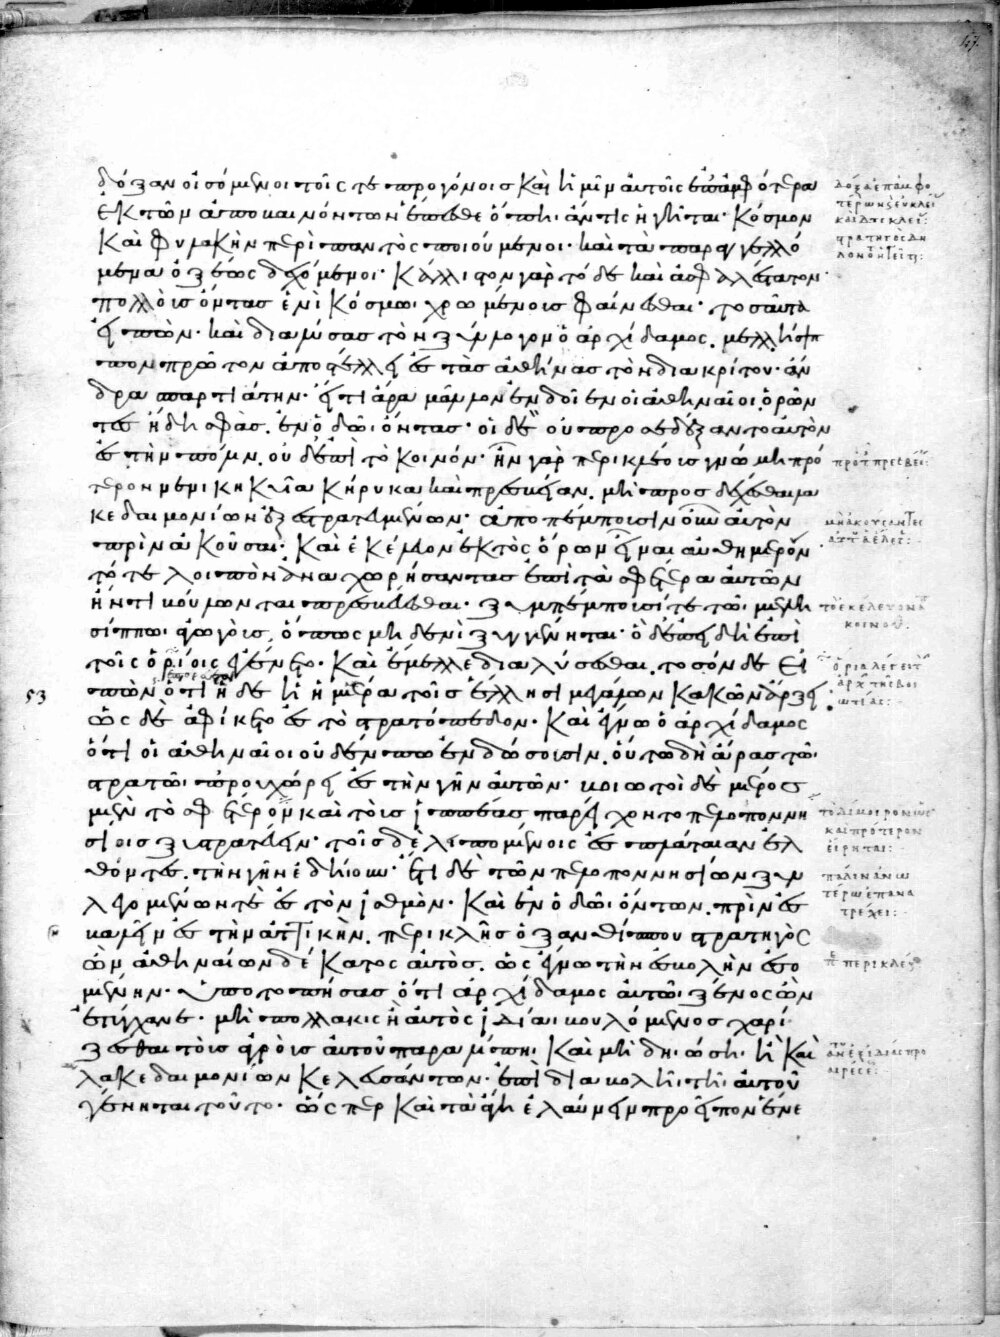 δόξαν οἰσόμενοι τοῖς τε προγόνοισ καὶ ἡμῖν αὐτοῖς ἐπ' ἀμφότερα
ἐκ τῶν ἀποβαινόντων ἕπεσθε ὅπηι ἄν τις ἡγῆται· κόσμον
καὶ φυλακὴν περὶ παντὸς ποιούμενοι· καὶ τὰ παραγγελλό
μενα ὀξέως δεχόμενοι· κάλλιστον γὰρ τόδε καὶ ἀσφαλέστατον·
πολλοὺσ ὄντασ ἑνὶ κόσμωι χρωμένουσ φαίνεσθαι· τοσαῦτα
εἰπὼν· καὶ διαλύσας τὸν ξύλλογον ὁ ἀρχίδαμος. μελήσιπ
πον πρῶτον ἀποστέλλει ἐσ τὰσ ἀθήνασ τὸν διακρίτου· ἄν
δρα σπαρτιάτην· εἴ τι ἄρα μᾶλλον ἐνδοῖεν οἱ ἀθηναῖοι ὁρῶν
τεσ ἤδη σφᾶσ ἐν ὁδῶι ὄντασ· οἱ δὲ οὐ προσεδέξαντο αὐτὸν
ἐσ τὴν πόλιν. οὐδ' ἐπὶ τὸ κοινόν· ἦν γὰρ περικλέουσ γνώμη πρό
τερον νενικηκυῖα κήρυκα καὶ πρεσβείαν. μὴ προσδέχεσθαι λα
κεδαιμονίων ἐξεστρατευμένων· ἀποπέμπουσιν οὖν αὐτὸν
πρὶν ἀκοῦσαι· καὶ ἐκέλευον ἐκτὸς ὅρων εἶναι αὐθημερὸν
τό τε λοιπὸν ἀναχωρήσαντασ ἐπὶ τὰ σφέτερα αὐτῶν
ἤν τι βούλωνται πρεσβεύεσθαι· ξυμπέμπουσί τε τῶι μελη
σίππωι ἀγωγοὺσ ὅπως μηδενὶ ξυγγένηται· ὁ δ' ἐπειδὴ ἐπὶ
τοῖς ὁρίοις ἐγένετο· καὶ ἔμελλε διαλύσεσθαι. τοσόνδε εἰ
πὼν ὅτι ἥδε ἡ ἡμέρα τοῖσ ἕλλησι μεγάλων κακῶν ἄρξει
53
ὡς δὲ ἀφίκετο ἐσ τὸ στρατόπεδον· καὶ ἔγνω ὁ ἀρχίδαμος
ὅτι οἱ ἀθηναῖοι οὐδέν πω ἐνδώσουσιν. οὕτω δὴ ἄρασ τῶι
στρατῶι προυχώρει ἐσ τὴν γῆν αὐτῶν· βοιωτοὶ δὲ μέροσ
μὲν τὸ σφέτερον καὶ τοὺσ ἱππέασ παρείχοντο πελοποννη
σίοισ ξυστρατεύειν· τοῖσ δὲ λειπομένοις ἐσ πλάταιαν ἐλ
θόντεσ. τὴν γῆν ἐδήιουν· ἔτι δὲ τῶν πελοποννησίων ξυλ
λεγομένων τὲ ἐσ τὸν ἰσθμὸν· καὶ ἐν ὁδῶι ὄντων. πρὶν ἐσ
βαλεῖν ἐσ τὴν ἀττικὴν. περικλῆσ ὁ ξανθίππου στρατηγὸς
ὢν ἀθηναίων δέκατος αὐτὸσ. ὡς ἔγνω τὴν ἐσβολὴν ἐσο
μένην· ὑποτοπήσασ ὅτι ἀρχίδαμος αὐτῶι ξένος ὢν
ἐτύγχανε· μὴ πολλακις ἢ αὐτὸς ἰδίαι βουλόμενοσ χαρί
ζεσθαι τοὺσ ἀγροὺσ αὐτοῦ παραλίπηι· καὶ μὴ δηιώσηι· ἢ καὶ
λακεδαιμονίων κελευσάντων· ἐπὶ διαβολῆι τῆι αὐτοῦ
γένηται τοῦτο· ὥσπερ καὶ τὰ ἄγη ἐλαύνειν προεῖπον ἕνε
πρὸ τ πρεσβεί:
τὸ ἐκέλευον ἀπὸ
κοινοῦ.
τὸ λεῖπον ὡς
καὶ πρότερον
εἴρηται:
πάλιν ἀνω
τέρω ἐπανα
τρέχει:
π περικλέους